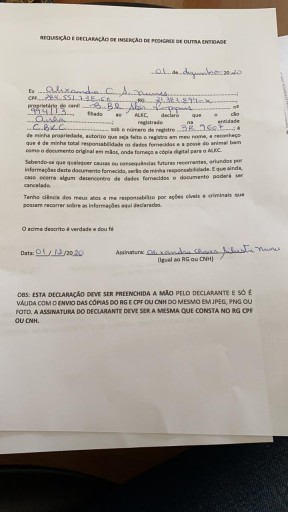 REQUISIÇÃO E DECLARAÇÃO DE INSERÇÃO DE PEDIGREE DE OUTRA ENTIDADE
01 de dezembro 2020
Eu Alixandra C. S. nunes
CPF RG
proprietário do canil nº
994/13 filiado ao ALKC, declaro que o cão
registrado na entidade
C.B.K.C. sob o número de registro ; a
de minha propriedade, autorizo que seja feito o registro em meu nome, e reconheço
que é de minha total responsabilidade os dados fornecidos e a posse do animal bem
como o documento original em mãos, onde forneço a cópia digital para o ALKC.
Sabendo-se que quaisquer causas ou consequências futuras recorrentes, oriundos por
informações deste documento fornecido, serão de minha responsabilidade. E que ainda,
caso ocorra algum desencontro de dados fornecidos o documento poderá ser
cancelado.
Tenho ciência dos meus atos e me responsabilizo por ações cíveis e criminais que
possam recorrer sobre as informações aqui declaradas.
O acima descrito é verdade e dou fé
Data: 01/12/2020 Assinatura: nunes
(Igual ao RG ou CNH)
OBS: ESTA DECLARAÇÃO DEVE SER PREENCHIDA A MÃO PELO DECLARANTE E SÓ É
VÁLIDA COM O ENVIO DAS CÓPIAS DO RG E CPF OU CNH DO MESMO EM JPEG, PNG OU
FOTO. A ASSINATURA DO DECLARANTE DEVE SER A MESMA QUE CONSTA NO RG CPF
OU CNH.